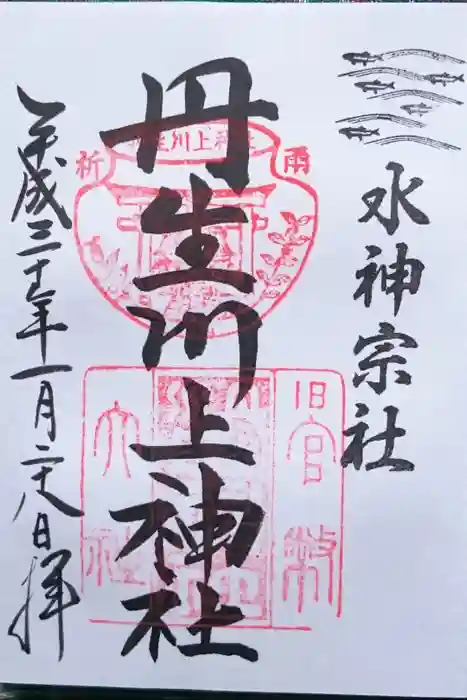 水神宗社
丹生川上神社
平成三十一年一月二十八日拝
生川上神社
雨
祈
旧官幣
大社